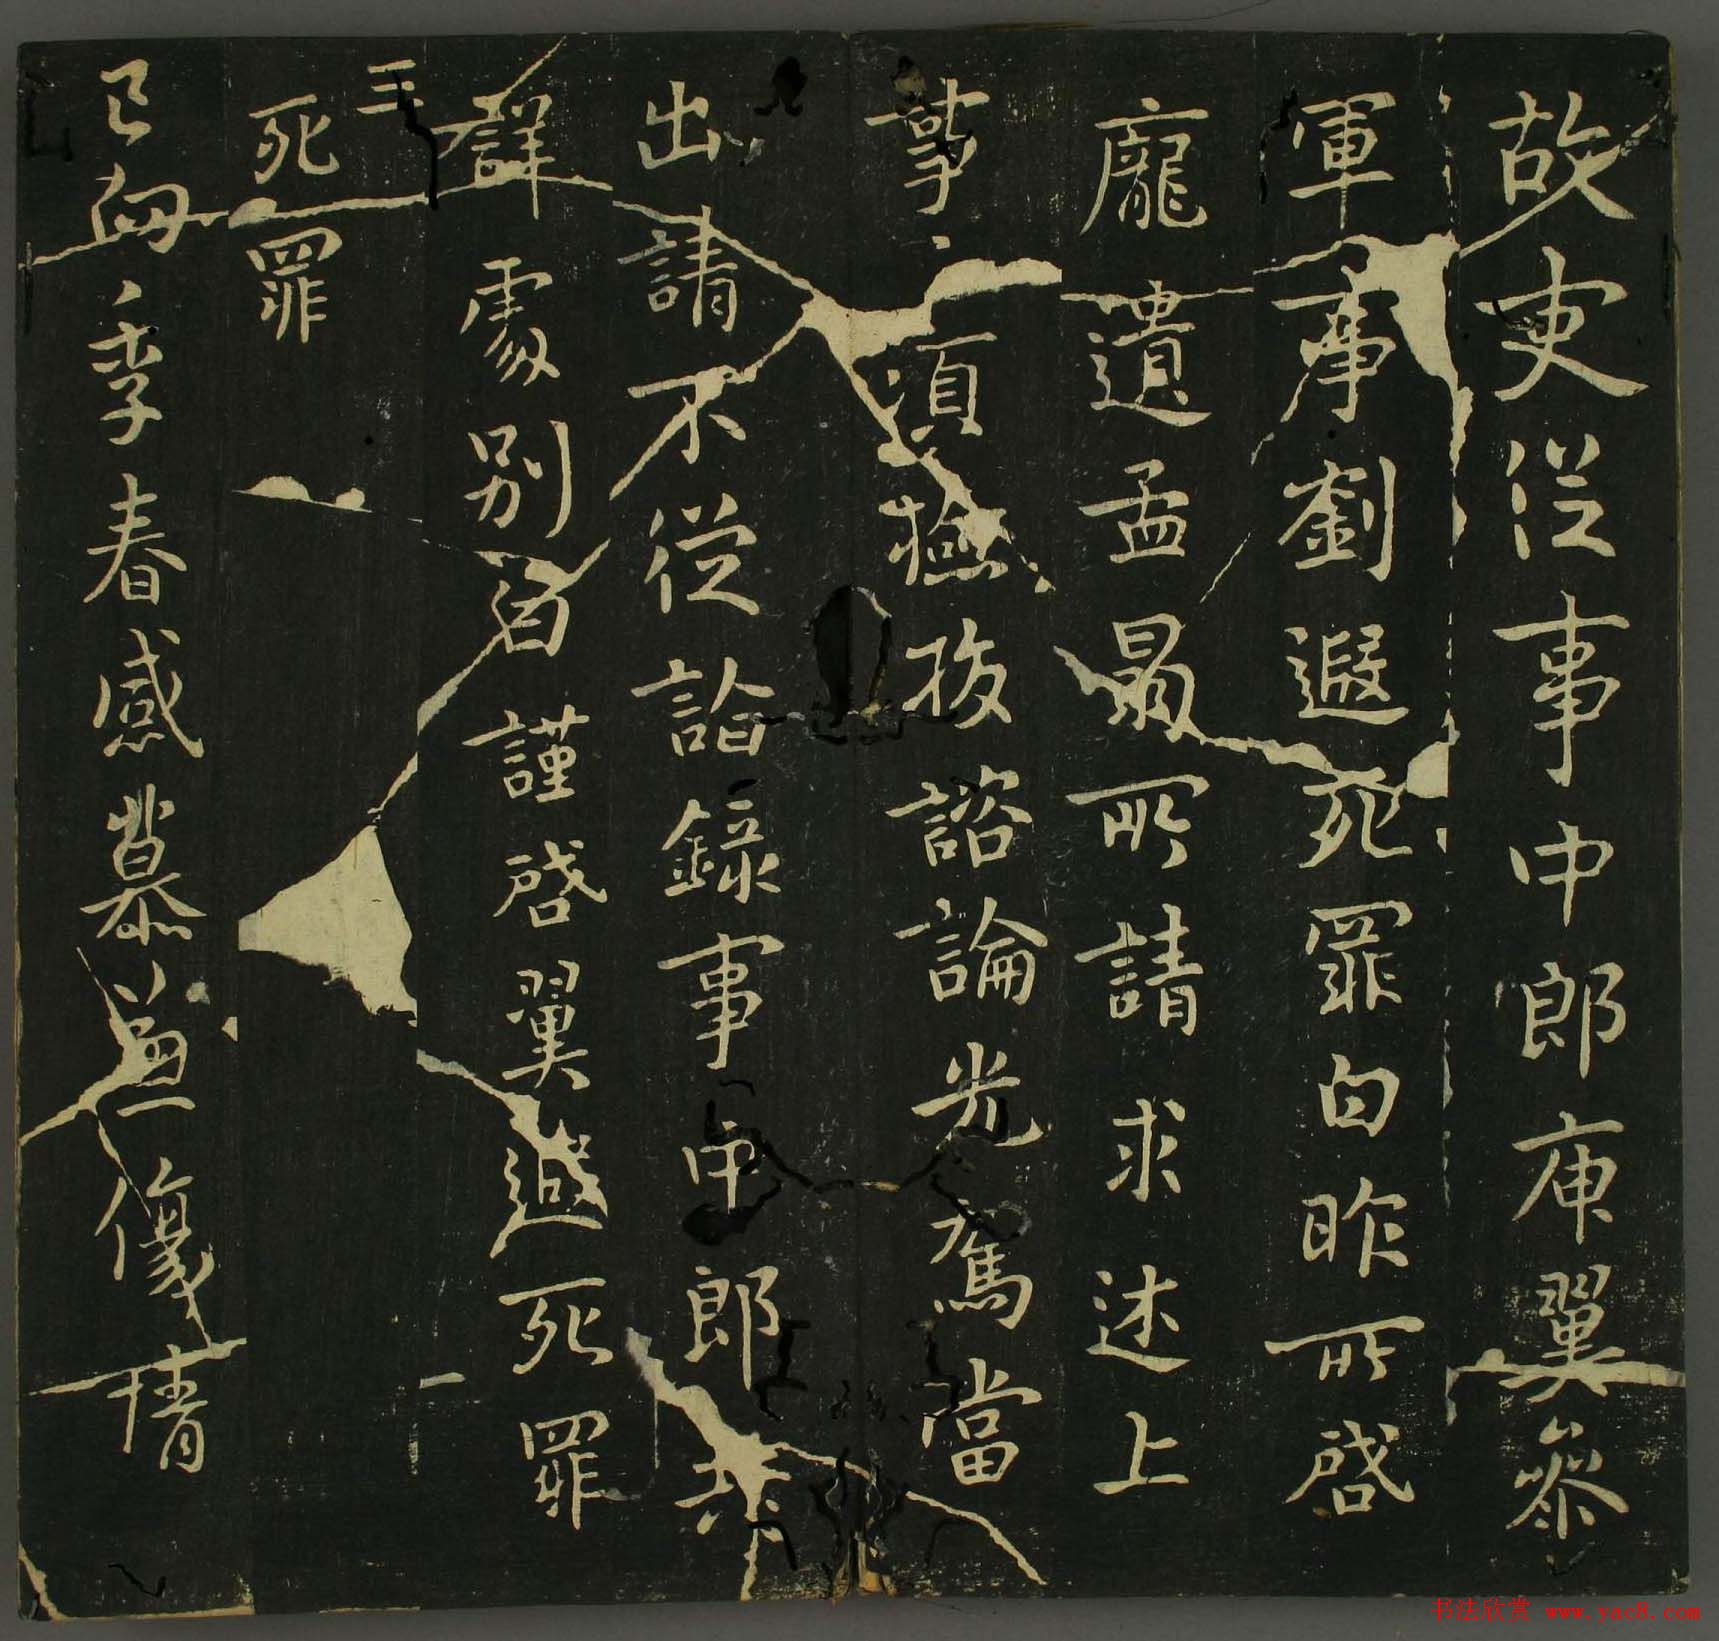 故吏從事中郎庾翼參
軍事劉遐死罪白昨所啓
龐遺孟昺所請求述上
事項檢校諮論光寓當
出請不從詣錄事中郎共
詳處別白謹啓翼遐死罪
死罪
王
已向季春感慕兼傷情
书法欣赏 www.yac8.com